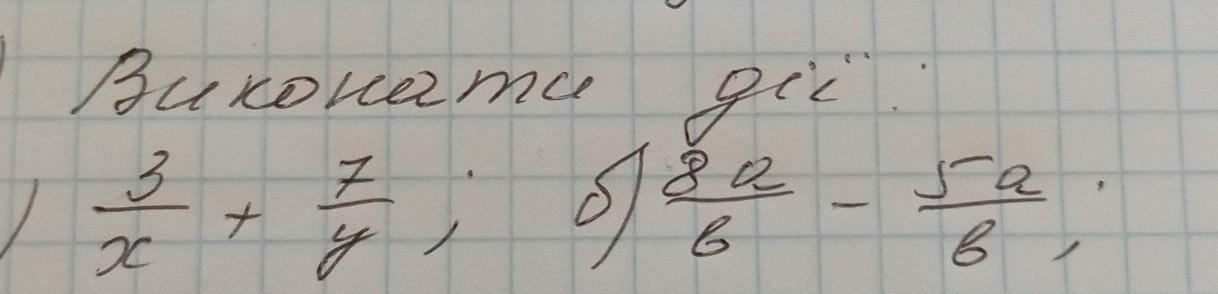 Виконати дії:
) 3/x + 7/y; б) 8a/b - 5a/b;